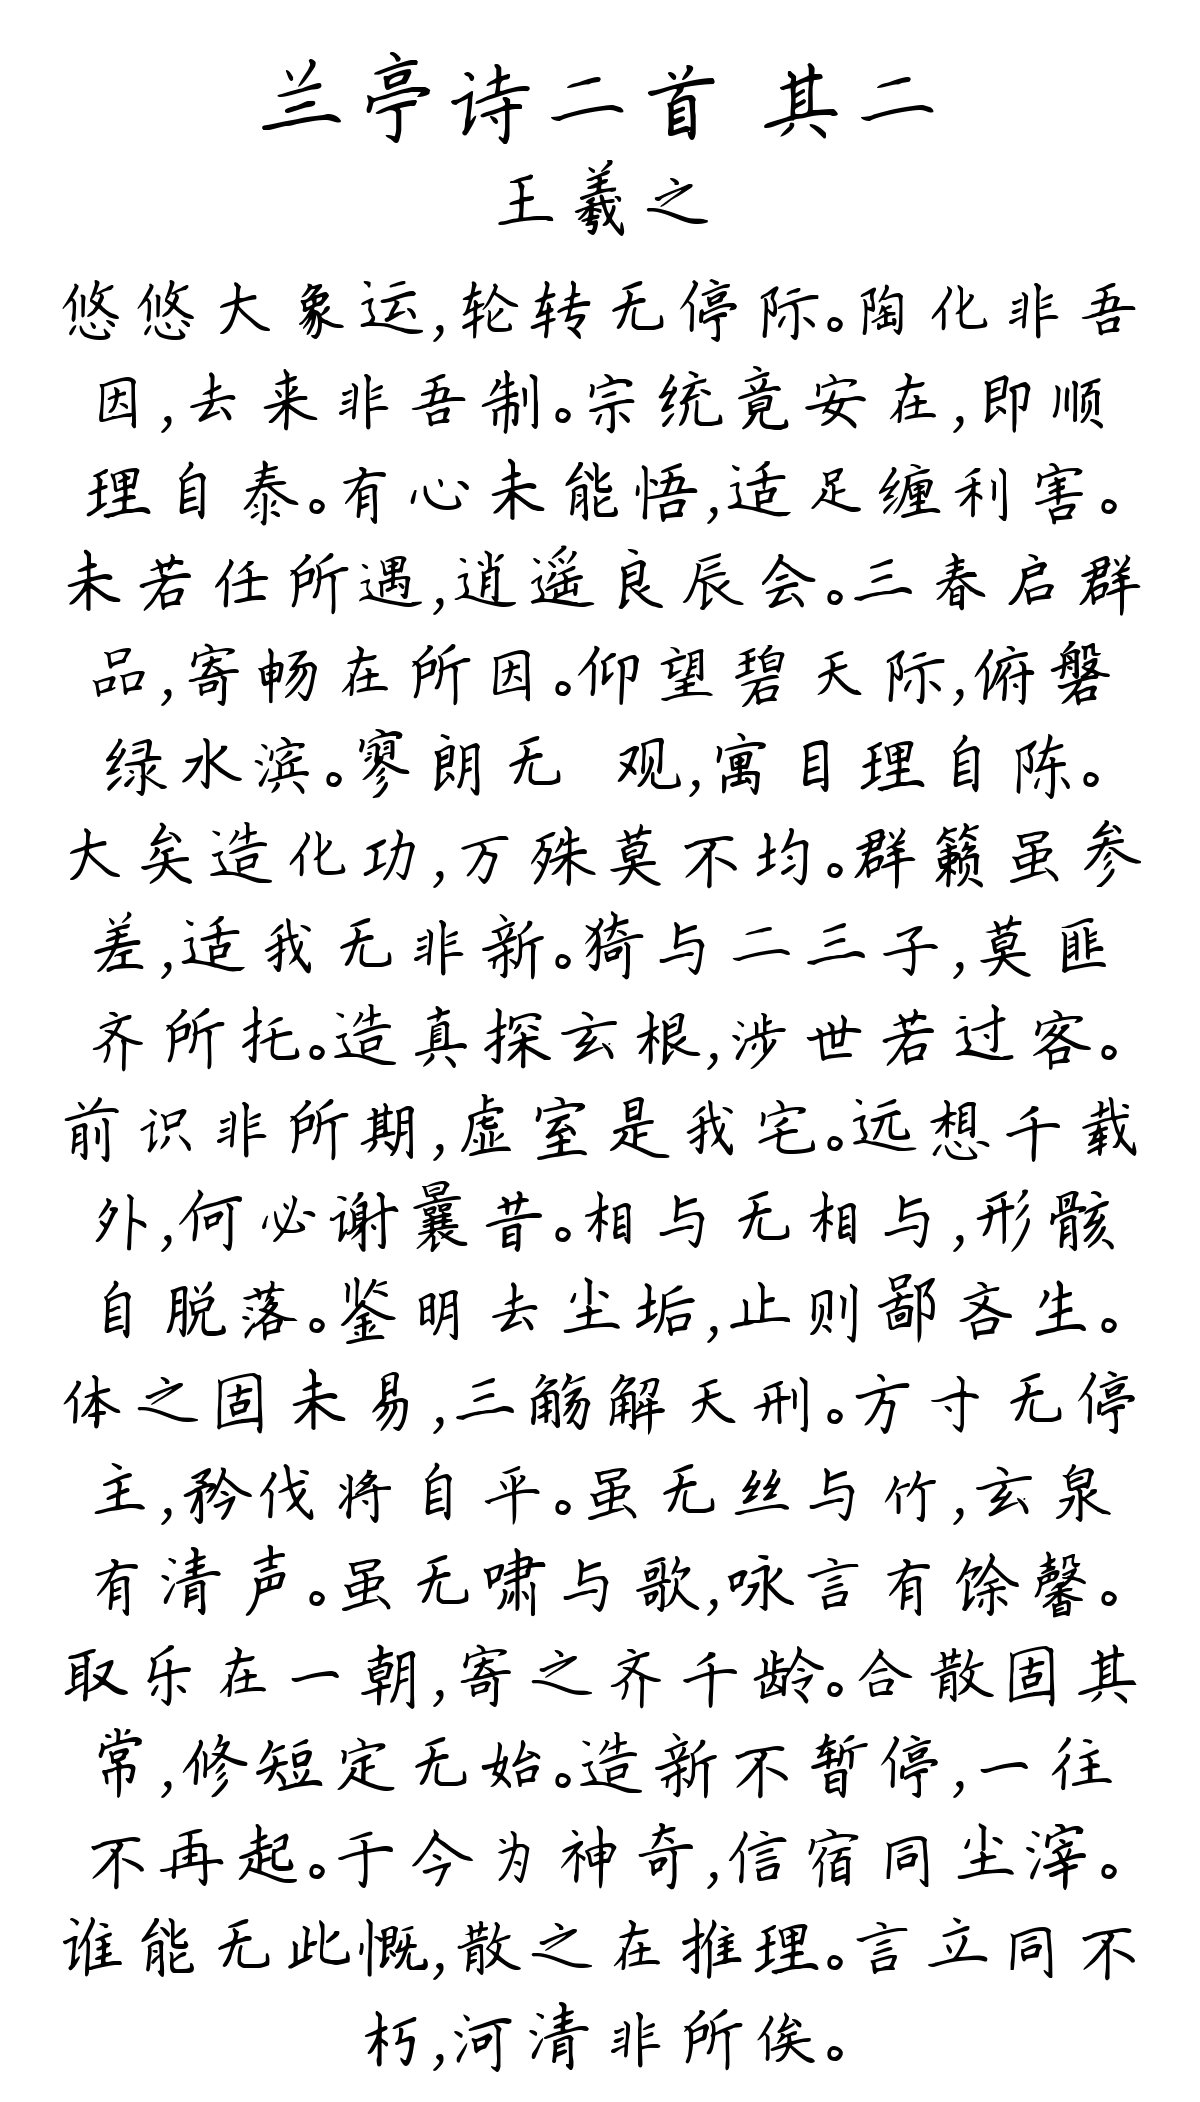 兰亭诗二首 其二
王羲之
悠悠大象运,轮转无停际。陶化非吾
因,去来非吾制。宗统竟安在,即顺
理自泰。有心未能悟,适足缠利害。
未若任所遇,逍遥良辰会。三春启群
品,寄畅在所因。仰望碧天际,俯磐
绿水滨。寥朗无 观,寓目理自陈。
大矣造化功,万殊莫不均。群籁虽参
差,适我无非新。猗与二三子,莫匪
齐所托。造真探玄根,涉世若过客。
前识非所期,虚室是我宅。远想千载
外,何必谢曩昔。相与无相与,形骸
自脱落。鉴明去尘垢,止则鄙吝生。
体之固未易,三觞解天刑。方寸无停
主,矜伐将自平。虽无丝与竹,玄泉
有清声。虽无啸与歌,咏言有馀馨。
取乐在一朝,寄之齐千龄。合散固其
常,修短定无始。造新不暂停,一往
不再起。于今为神奇,信宿同尘滓。
谁能无此慨,散之在推理。言立同不
朽,河清非所俟。